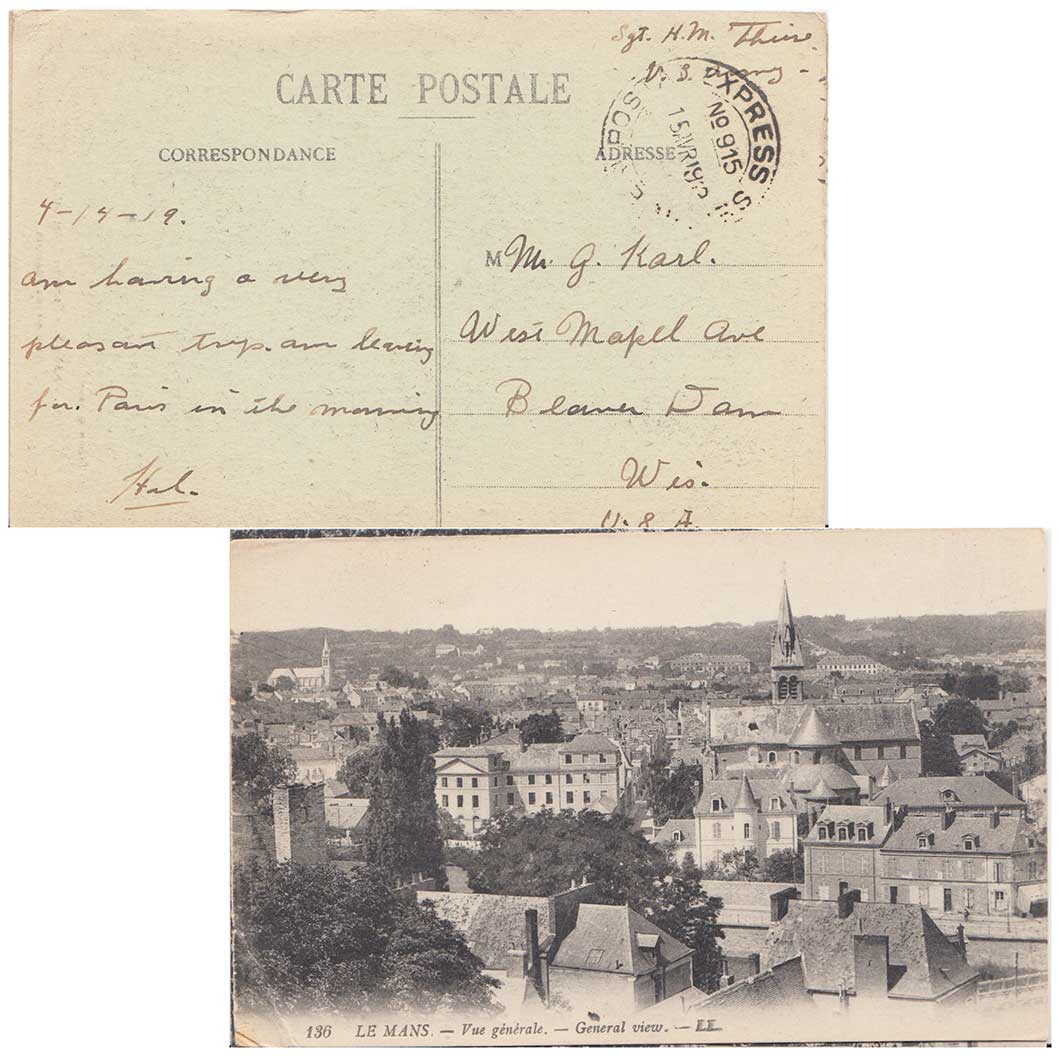 Sgt. H.M.
U. S. Army -
CARTE POSTALE
EXPRESS
No 915
15 AVR 19
CORRESPONDANCE
ADRESSE
4-14-19.
am having a very
pleasant trip. am leaving
for. Paris in the morning
Hal.
M Mr. G. Karl.
West Mapel Ave
Beaver Dam
Wis.
U. S. A.
136 LE MANS. — Vue générale. — General view. — LL